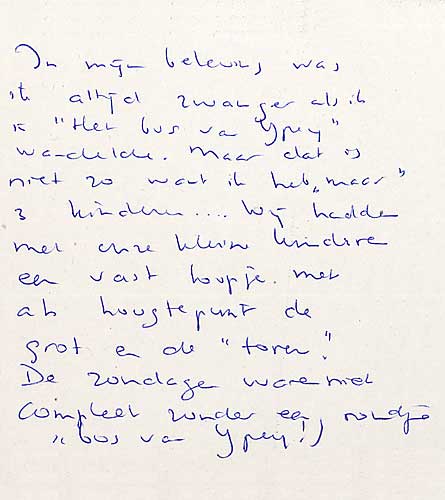 In mijn beleving was
ik altijd zwanger als ik
in "Het bos van Ypeij"
wandelde. Maar dat is
niet zo want ik heb "maar"
3 kinderen.... Wij hadden
met onze kleine kinderen
een vast loopje. met
als hoogtepunt de
grot en de "toren".
De zondagen waren niet
compleet zonder een rondje
"bos van Ypeij!)